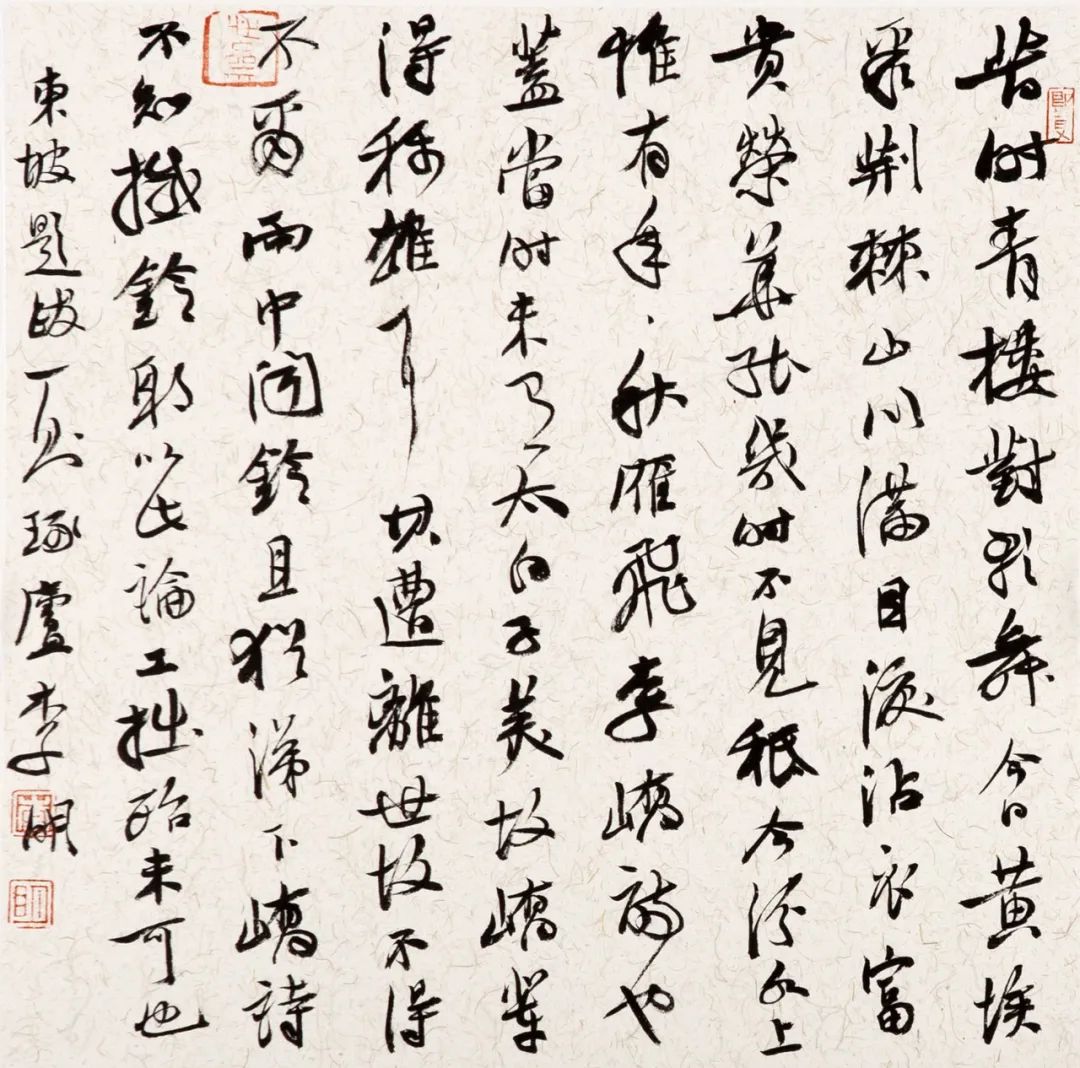 昔時青樓對歌舞今日黄埃
聚荆棘山川滿目淚沾衣富
貴榮華能幾時不見秖今汾水上
惟有年〻秋雁飛李嶠詩也
蓋當時未有太白子美故嶠輩
得称雄耳其遭離世故不得
不爾雨中聞鈴且猶涕下嶠詩
不知撼鈴耶以此論工拙殆未可也
東坡題跋一則琢廬李明